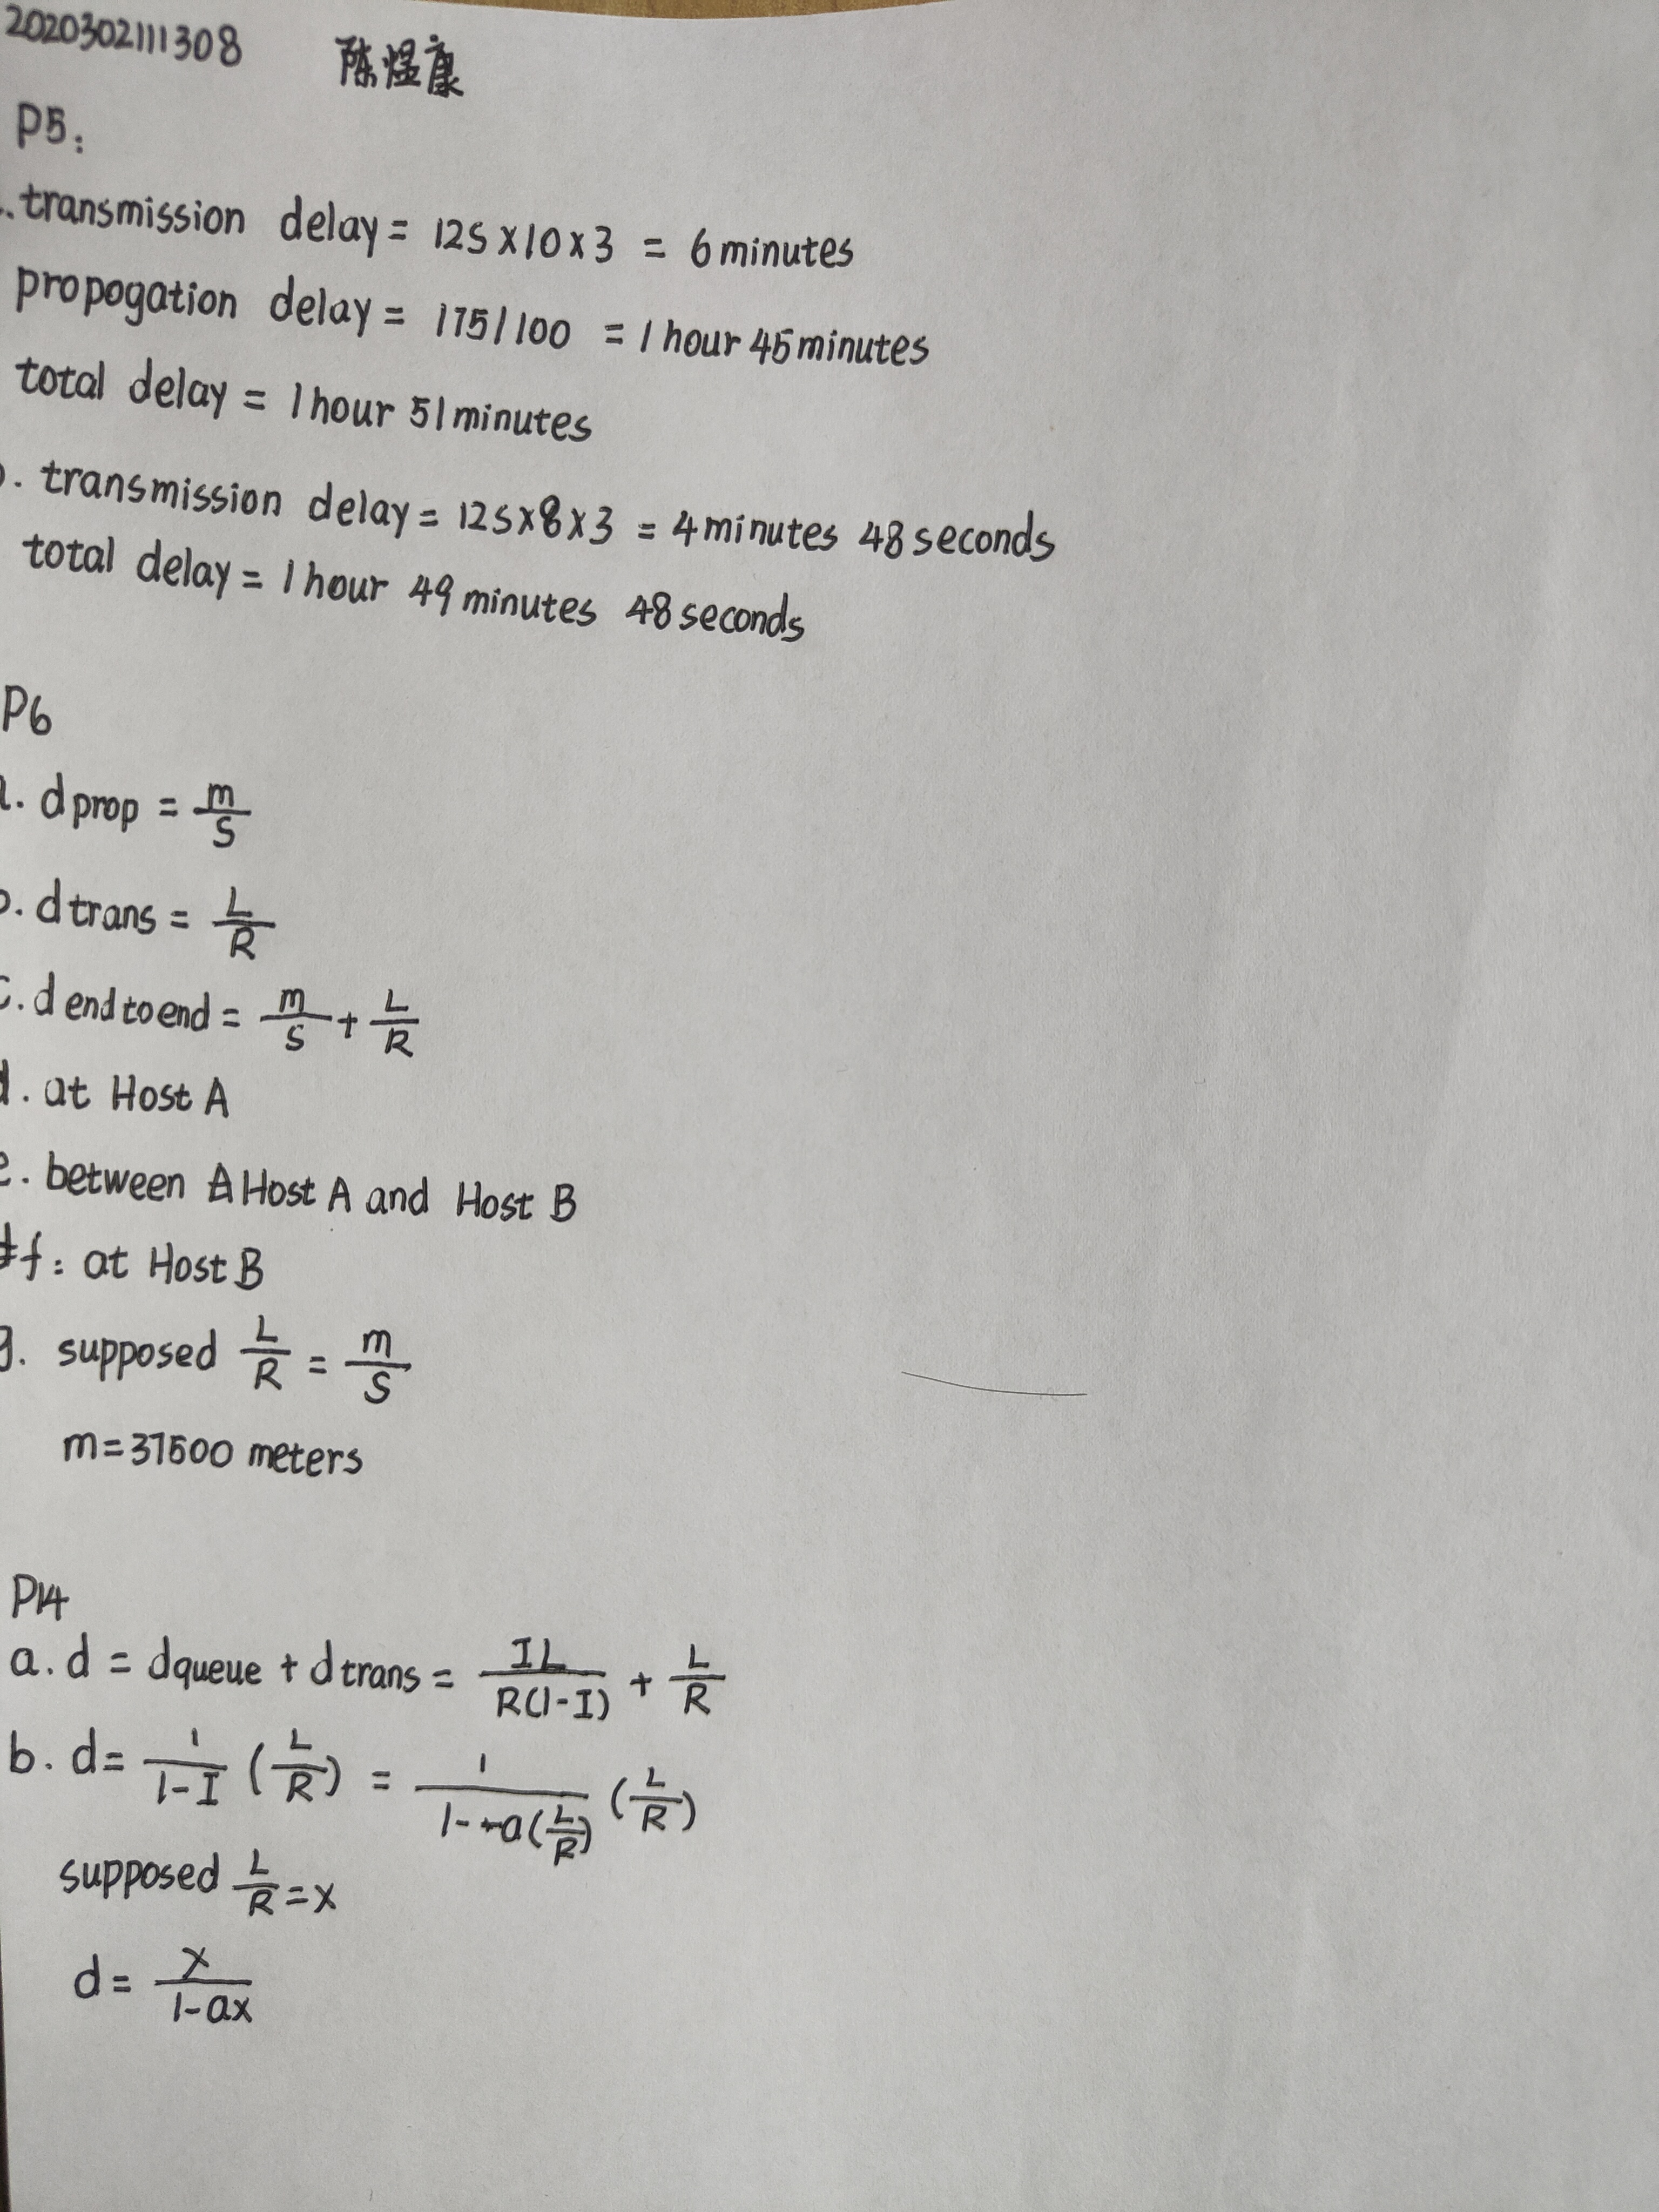 2020302111308 陈煜康
P5:
. transmission delay = 12s×10×3 = 6 minutes
propogation delay = 175/100 = 1 hour 45 minutes
total delay = 1 hour 51 minutes
b. transmission delay = 12s×8×3 = 4 minutes 48 seconds
total delay = 1 hour 49 minutes 48 seconds
P6
a. d prop = m/S
b. d trans = L/R
c. d end to end = m/S + L/R
d. at Host A
e. between Host A and Host B
f: at Host B
g. supposed L/R = m/S
m = 37500 meters
P14
a. d = dqueue + d trans = IL/R(1-I) + L/R
b. d = 1/1-I (L/R) = 1/1-a(L/R) (L/R)
supposed L/R = x
d = x/1-ax